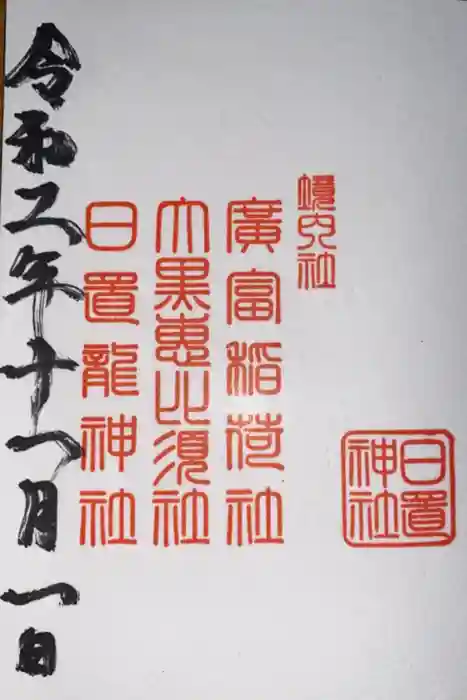 境内社
日置神社
廣富稲荷社
大黒恵比須社
日置龍神社
令和二年十一月一日